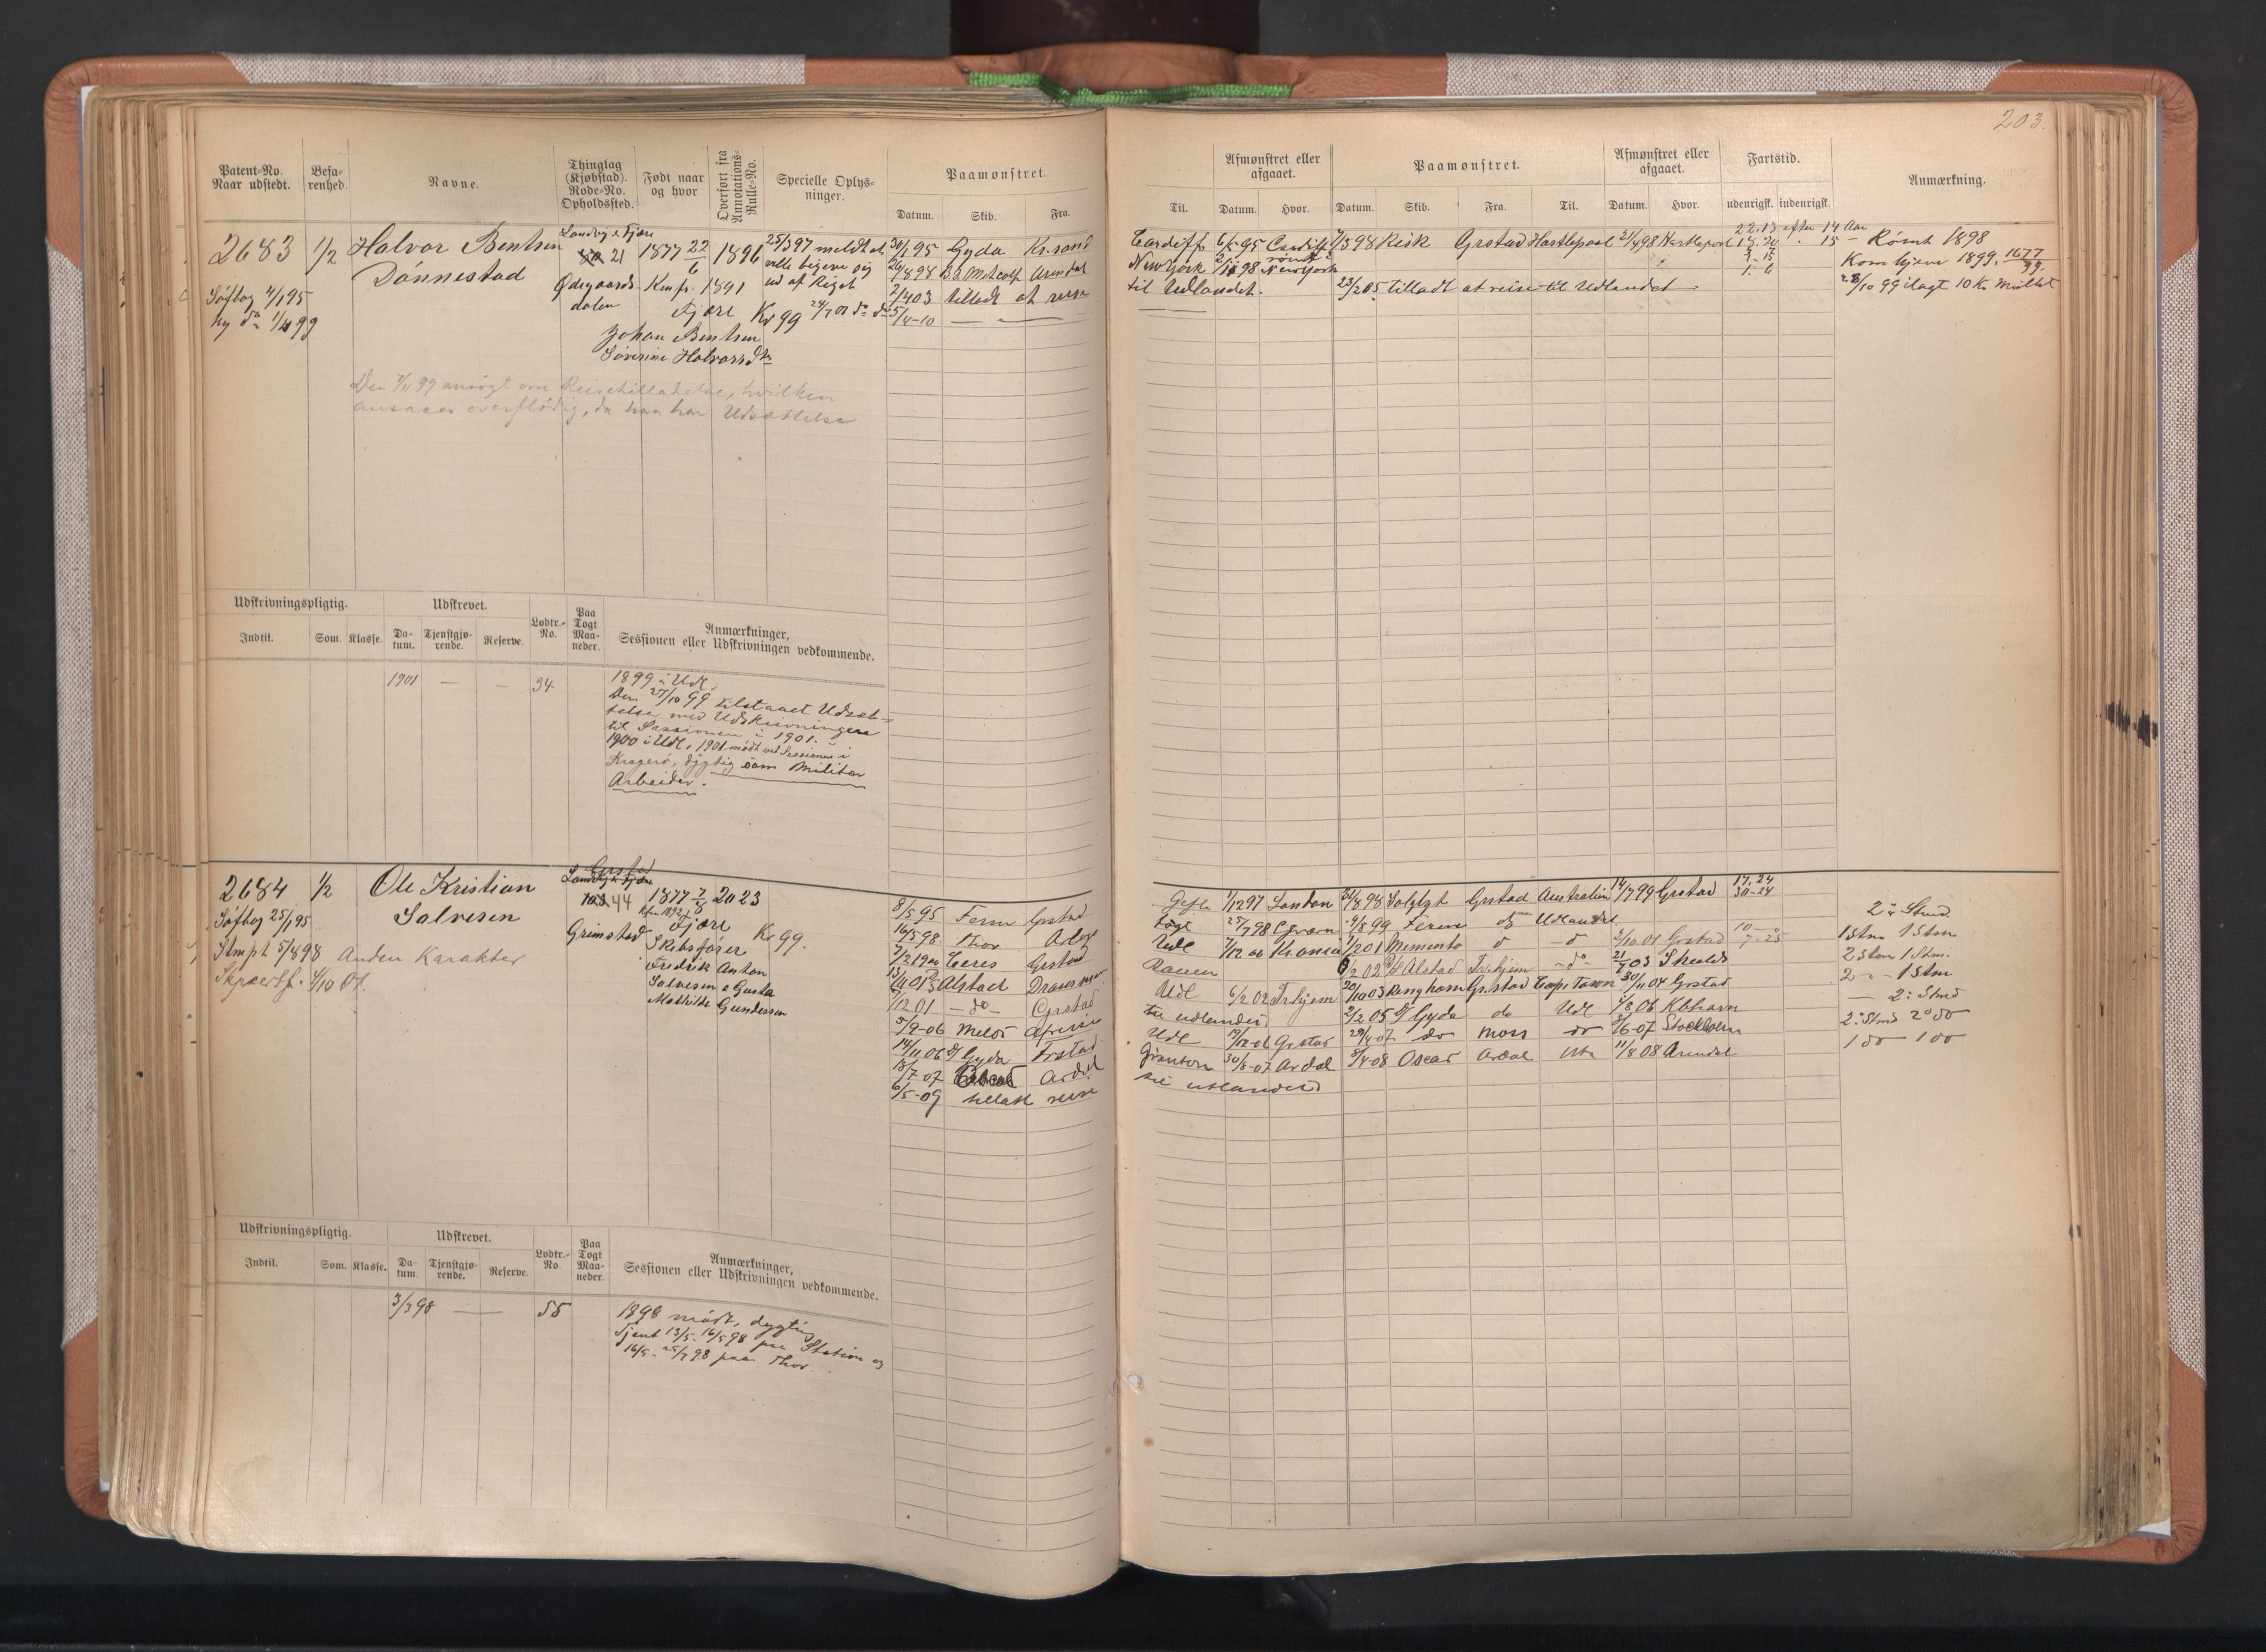 203.
Patent-No. Naar udstedt.
Befarenhed.
Navne.
Thinglag (Kjøbstad). Rode-No. Opholdssted.
Født naar og hvor
Overført fra Annotations-Rulle-No.
Specielle Oplysninger.
Paamønstret.
Datum. Skib. Fra.
Til.
Afmønstret eller afgaaet.
Datum. Hvor.
Paamønstret.
Datum. Skib. Fra. Til.
Afmønstret eller afgaaet.
Datum. Hvor.
Fartstid.
udenrigsk. indenrigsk.
Anmærkning.
2683 1/2 Halvor Bentsen
Dønnestad
Søfbog 4/1 95
ny do 1/4 99
Landvig & Fjære
21
Ødegaards
dalen
1877 22/6
Kmfr. 1891
Fjære
Johan Bentsen
Søverine Halvorsdtr
1896
Kr 99
25/3 97 meldt at
ville begive sig
ud af Riget
30/1 95 Gyda Kr.sand
26/8 98 Arendal
2/4 03 tilladt at reise
5/4-10
Cardiff 6/5 95 Cardiff
New York 98 rømt i New York
til Udlandet.
98 Risk Grstad Hartlepool 21/4 98 Hartlepool
23/2 05 tilladt at reise til Udlandet
22.13 efter 14 Aar
15 - Rømt 1898
Kom hjem 1899. 1677/99.
28/10 99 ilagt 10 Kr Mulkt
Den 7/11 99 ansøgt om Reisetilladelse, hvilken
ansaaes overflødig, da han har Udsættelse
Udskrivningspligtig.
Indtil. Som. Klasse.
Udskrevet.
Datum. Tjenstgjørende. Reserve.
Lodtr.-No.
Paa Togt Maaneder.
Anmærkninger, Sessionen eller Udskrivningen vedkommende.
1901 — — 34
1899 i Udl.
Den 27/10 99 tilstaaet Udsæt-
telse med Udskrivningen
til Sessionen i 1901.
1900 i Udl, 1901 mødt ved Sessionen i
Kragerø, dygtig som Militær
Arbeider.
2684 1/2 Ole Kristian
Salvesen
Søfbog 25/1 95
Stmpt 5/4 98 Anden Karakter
4/10 01.
Grstad
Landvig & Fjære
103 44
Grimstad
1877 7/8
Kfm 1892
Fjære
Skibsfører
Fredrik Anton
Salvesen & Gusta
Mathilde Gundersen
2023
Kr 99.
8/5 95 Ferm Grstad
16/5 98 Thor
7/2 1900 Ceres Grstad
Alstad Drammen
12 01 — do — Grstad
5/9-06 Melos
14/11 06 Gyda Frstad
18/7-07 Ardal
6/5-09 tillatt reise
Gefle 1/12 97 London
25/7 98
Udl 7/12 00
Udl 6/2 02 Trhjem
til udlandet.
Udl 19/12-06 Grstad
Granton 30/8-07 Ardal
til utlandet
31/8 98 Solglyt Grstad Australien 14/7 99 Grstad
4/8 99 Ferm do Udlandet
7/2 01 Memento do — do 3/10 01 Grstad
2 02 Alstad Trhjem — do — 21/7 03 Shields
20/10 03 Ringhorn Gr.stad Cape Town 30/11 04 Grstad
2/2 05 Gyda do Udl 2/8 06 Kbhavn
29/4-07 do Moss do 8/6-07 Stockholm
8/4-08 Oscar Ardal 11/8 08 Arendal
17.24
30-24
7-25
2. Stmd.
1 Stm 1 Stm
2 Stm 1 Stm.
1 Stm
2. Stmd
Udskrivningspligtig.
Indtil. Som. Klasse.
Udskrevet.
Datum. Tjenstgjørende. Reserve.
Lodtr.-No
Paa Togt Maaneder.
Anmærkninger, Sessionen eller Udskrivningen vedkommende.
3/3 98 — — 55
1898 mødt, dygtig
Tjent 13/5-16/5 98 paa Station og
16/5-25/7 98 paa Thor.